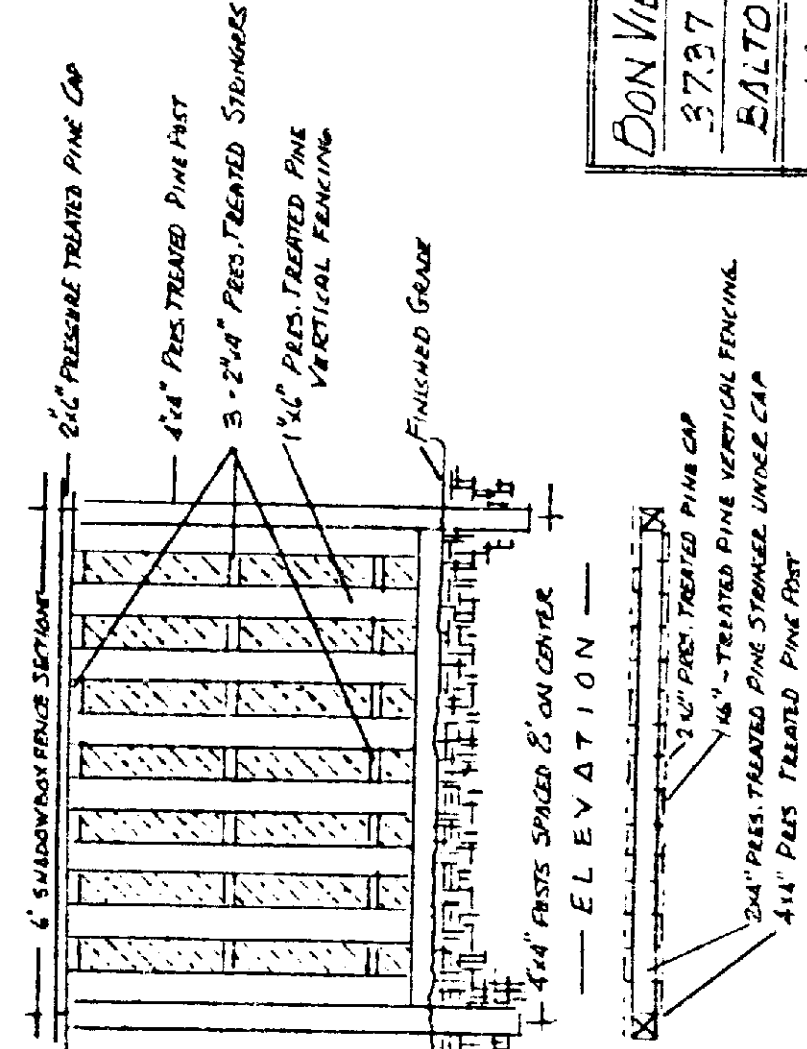 6' SHADOWBOX FENCE SECTIONS
2"x6" PRESSURE TREATED PINE CAP
4"x4" PRES. TREATED PINE POST
3 - 2"x4" PRES. TREATED STRINGERS
1"x6" PRES. TREATED PINE
VERTICAL FENCING
FINISHED GRADE
4"x4" POSTS SPACED 8' ON CENTER
ELEVATION
2x6" PRES. TREATED PINE CAP
1x6" - TREATED PINE VERTICAL FENCING
2x4" PRES. TREATED PINE STRINGER UNDER CAP
4x4" PRES TREATED PINE POST
BON VIE
3737
BALTO